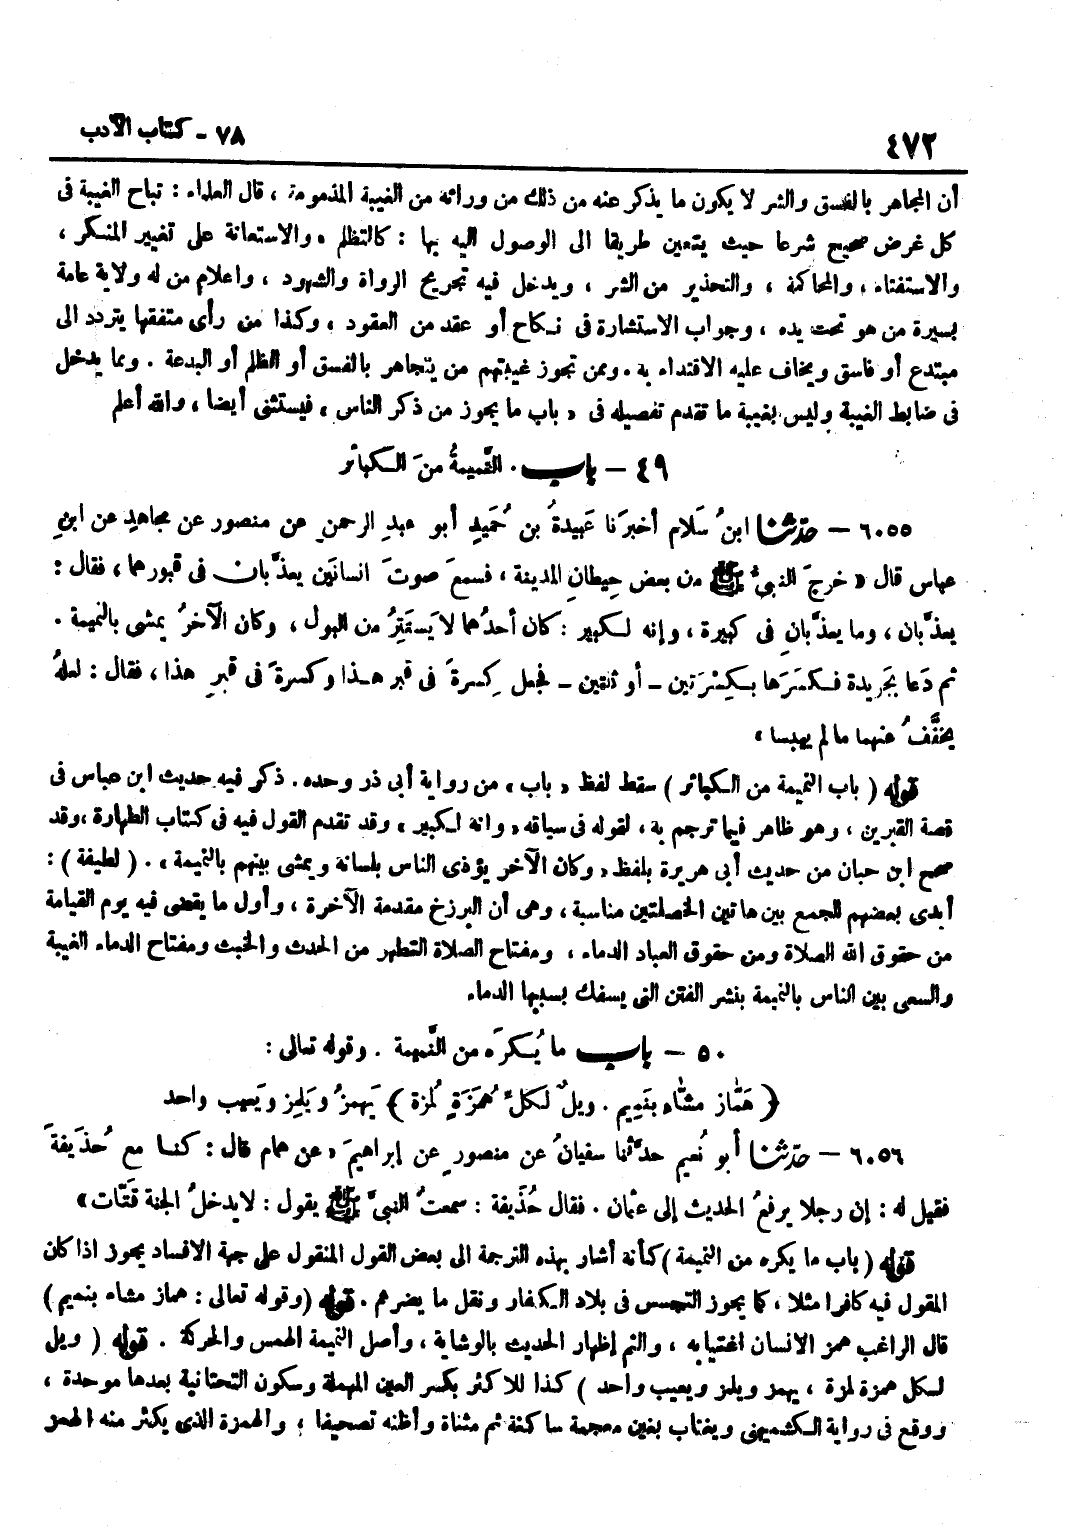 ٤٧٢
٧٨ - كتاب الأدب
أن المجاهر بالفسق والشر لا يكون ما يذكر عنه من ذلك من ورائه من الغيبة المذمومة ، قال العلماء : تباح الغيبة فى
كل غرض صحيح شرعا حيث يتعين طريقا الى الوصول اليه بها : كالتظلم ، والاستعانة على تغيير المنكر ،
والاستفتاء ، والمحاكمة ، والتحذير من الشر ، ويدخل فيه تجريح الرواة والشهود ، واعلام من له ولاية عامة
بسيرة من هو تحت يده ، وجواب الاستشارة فى نكاح أو عقد من العقود ، وكذا من رأى متفقها يتردد الى
مبتدع أو فاسق ويخاف عليه الاقتداء به . وممن تجوز غيبتهم من يتجاهر بالفسق أو الظلم أو البدعة . ومما يدخل
فى ضابط الغيبة وليس بغيبة ما تقدم تفصيله فى « باب ما يجوز من ذكر الناس ، فيستثنى أيضا ، والله أعلم
٤٩ - باب . النَّميمةُ منَ الكبائر
٦٠٥٥ - حدّثنا ابنُ سَلام أخبرَنا عَبيدةُ بن حُمَيدٍ أبو عبدِ الرحمنِ عن منصور عن مجاهدٍ عن ابنِ
عباس قال « خرجَ النبيُّ ﷺ من بعض حِيطانِ المدينة ، فسمعَ صوتَ انسانَين يعذَّبان فى قبورهما ، فقال :
يعذَّبان ، وما يعذَّبانِ فى كبيرة ، وإنه لكبير : كان أحدُهما لا يَستَتِرُ من البول ، وكان الآخرُ يمشى بالنميمة .
ثم دَعا بجَريدة فكسَرَها بكِسْرَتين - أو ثنتين - فجعل كِسرةً فى قبر هذا وكسرةً فى قبرِ هذا ، فقال : لعلهُ
يخفَّفُ عنهما ما لم ييبسا »
قوله ( باب النميمة من الكبائر ) سقط لفظ « باب ، من رواية أبى ذر وحده . ذكر فيه حديث ابن عباس فى
قصة القبرين ، وهو ظاهر فيما ترجم به ، لقوله فى سياقه « وانه لكبير ، وقد تقدم القول فيه فى كتاب الطهارة ، وقد
صحح ابن حبان من حديث أبى هريرة بلفظ « وكان الآخر يؤذى الناس بلسانه ويمشى بينهم بالنميمة ، . ( لطيفة ) :
أبدى بعضهم للجمع بين هاتين الخصلتين مناسبة ، وهى أن البرزخ مقدمة الآخرة ، وأول ما يقضى فيه يوم القيامة
من حقوق الله الصلاة ومن حقوق العباد الدماء ، ومفتاح الصلاة التطهر من الحدث والخبث ومفتاح الدماء الغيبة
والسعى بين الناس بالنميمة بنشر الفتن التى يسفك بسببها الدماء
٥٠ - باب ما يُكرَه من النَّميمة . وقوله تعالى :
﴿ هَمَّاز مشّاء بنَميم . ويلٌ لكلِّ هُمَزَةٍ لُمزة ﴾ يَهمِزُ ويَلمِز ويَعيب واحد
٦٠٥٦ - حدّثنا أبو نُعيم حدَّثنا سفيانُ عن منصورٍ عن إبراهيمَ « عن همام قال : كنا مع حُذَيفةَ
فقيل له : إن رجلا يرفعُ الحديث إلى عثمان . فقال حُذَيفة : سمعتُ النبيَّ ﷺ يقول : لا يدخلُ الجنة قَتّات »
قوله ( باب ما يكره من النميمة ) كأنه أشار بهذه الترجمة الى بعض القول المنقول على جهة الافساد يجوز اذا كان
المقول فيه كافرا مثلا ، كما يجوز التجسس فى بلاد الكفار ونقل ما يضرهم . قوله ( وقوله تعالى : هماز مشاء بنميم )
قال الراغب همز الانسان اغتيابه ، والنم إظهار الحديث بالوشاية ، وأصل النميمة الهمس والحركة . قوله ( ويل
لكل همزة لمزة ، يهمز ويلمز ويعيب واحد ) كذا للاكثر بكسر العين المهملة وسكون التحتانية بعدها موحدة ،
ووقع فى رواية الكشميهنى ويغتاب بغين معجمة ساكنة ثم مثناة وأظنه تصحيفا ؛ والهمزة الذى يكثر منه الهمز